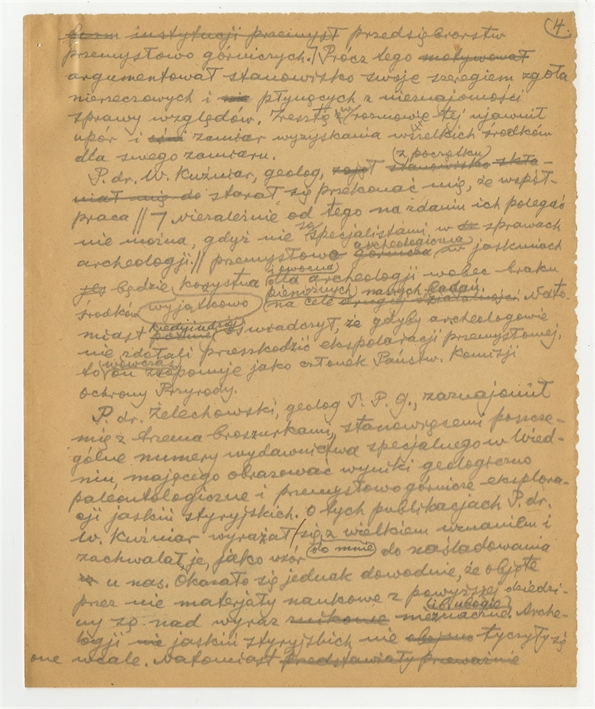 4.
przedsiębiorstw
przemysłowo górniczych. / Prócz tego motywował
argumentował stanowisko swoje szeregiem zgoła
nierzeczowych i płynących z nieznajomości
sprawy względów. Zresztą w rozmowie tej ujawnił
upór i zamiar wyzyskania wszelkich środków
dla swego zamiaru.
(z początku)
P. dr. W. Kuźniar, geolog, stanowisko
starał się przekonać mię, że współ-
praca // 7 niezależnie od tego na zdaniu ich polegać
nie można, gdyż nie są specjalistami w sprawach
archeologji: // przemysłowo górnicza archeologiczna w jaskiniach
będzie korzystna dla archeologji wobec braku
środków wyjątkowo pieniężnych na cele badań. Nato-
miast później oświadczył, że gdyby archeologowie
nie zdołali przeszkodzić eksploatacji przemysłowej,
to on wówczas jako członek Państw. Komisji
Ochrony Przyrody.
P. dr. Żelechowski, geolog P. P. G., zaznajomił
mię z trzema broszurkami, stanowiącemi poszcze-
gólne numery wydawnictwa specjalnego w Wied-
niu, mającego obrazować wyniki geologiczno
paleontologiczne i przemysłowo górnicze eksplora-
cji jaskiń styryjskich. O tych publikacjach P. dr.
W. Kuźniar wyrażał się z wielkiem uznaniem i
zachwalał je, jako wzór do mnie do naśladowania
u nas. Okazało się jednak dowodnie, że objęte
przez nie materjały naukowe z powyższej dziedzi-
ny są nad wyraz nieznaczne i ubogie. Arche-
ologji jaskiń styryjskich nie tyczyły się
one wcale. Natomiast przedstawiały przeważnie